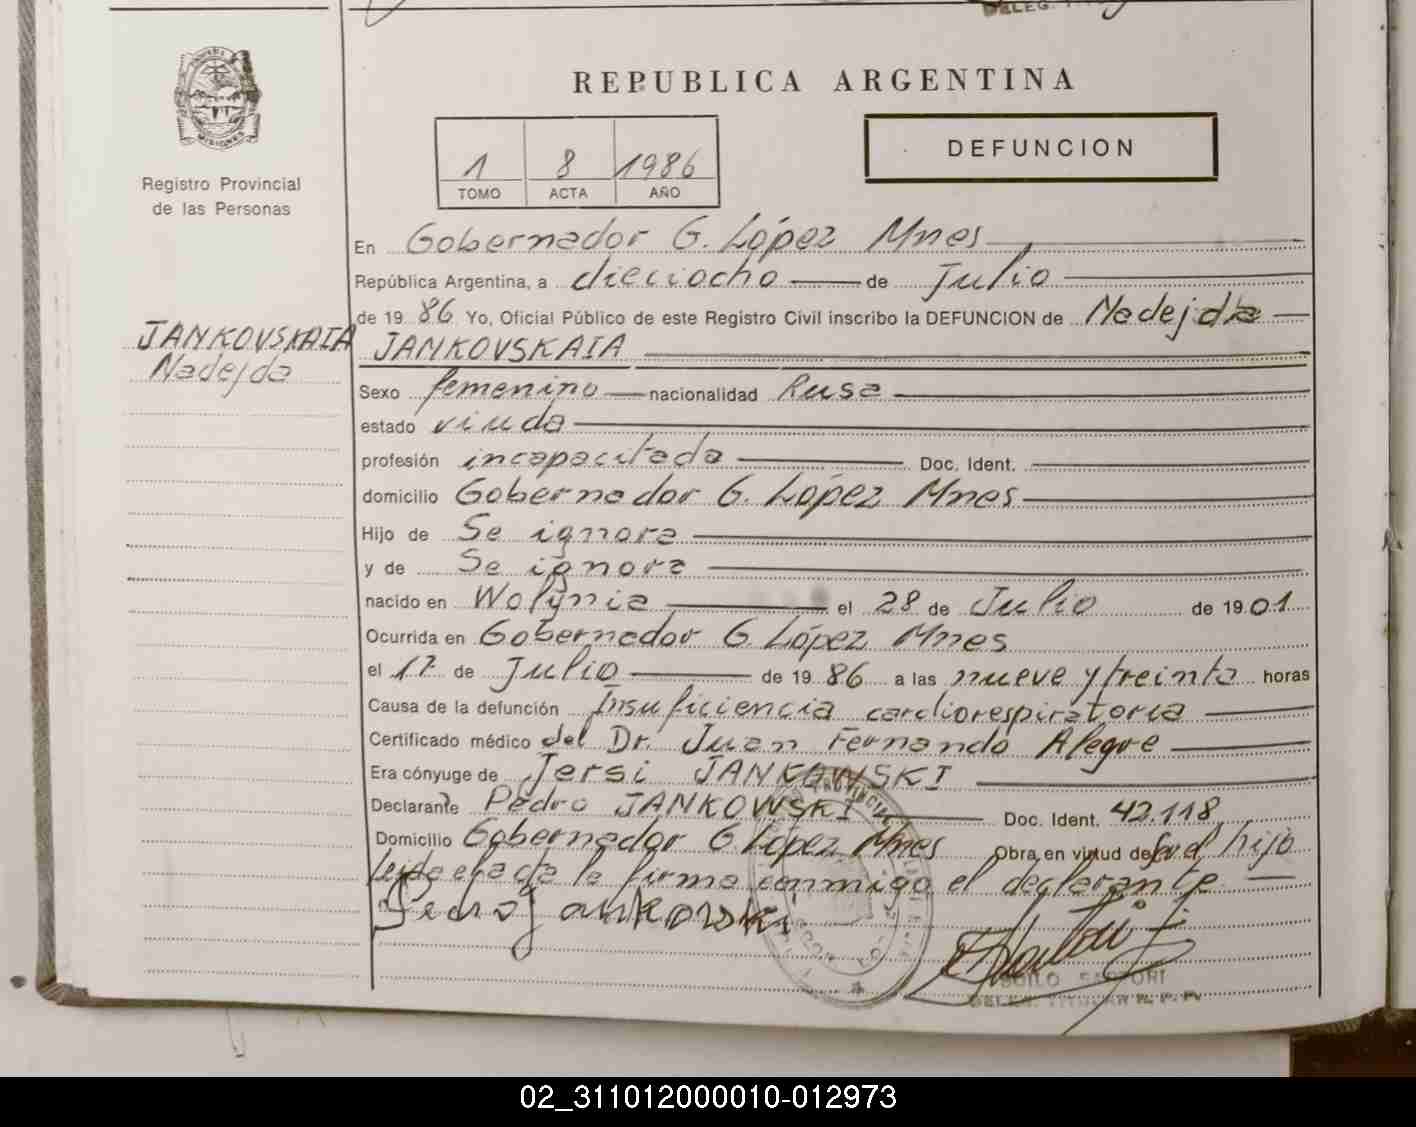 REPUBLICA ARGENTINA
DEFUNCION
1 8 1986
TOMO ACTA AÑO
MISIONES
Registro Provincial
de las Personas
JANKOVSKAIA
Nadejda
En Gobernador G. López Mnes
República Argentina, a dieciocho de Julio
de 19 86 Yo, Oficial Público de este Registro Civil inscribo la DEFUNCION de Nadejda
JANKOVSKAIA
Sexo femenino nacionalidad Rusa
estado viuda
profesión incapacitada Doc. Ident.
domicilio Gobernador G. López Mnes
Hijo de Se ignora
y de Se ignora
nacido en Wolynia el 28 de Julio de 1901
Ocurrida en Gobernador G. López Mnes
el 17 de Julio de 19 86 a las nueve y treinta horas
Causa de la defunción Insuficiencia cardiorespiratoria
Certificado médico del Dr. Juan Fernando Alegre
Era cónyuge de Jersi JANKOWSKI
Declarante Pedro JANKOWSKI Doc. Ident. 42.118
Domicilio Gobernador G López Mnes Obra, en virtud de ser el hijo
leida el acta la firma conmigo el declarante
Pedro Jankowski
SARTORI
DELEG. TITULAR R. P. P.
02_311012000010-012973